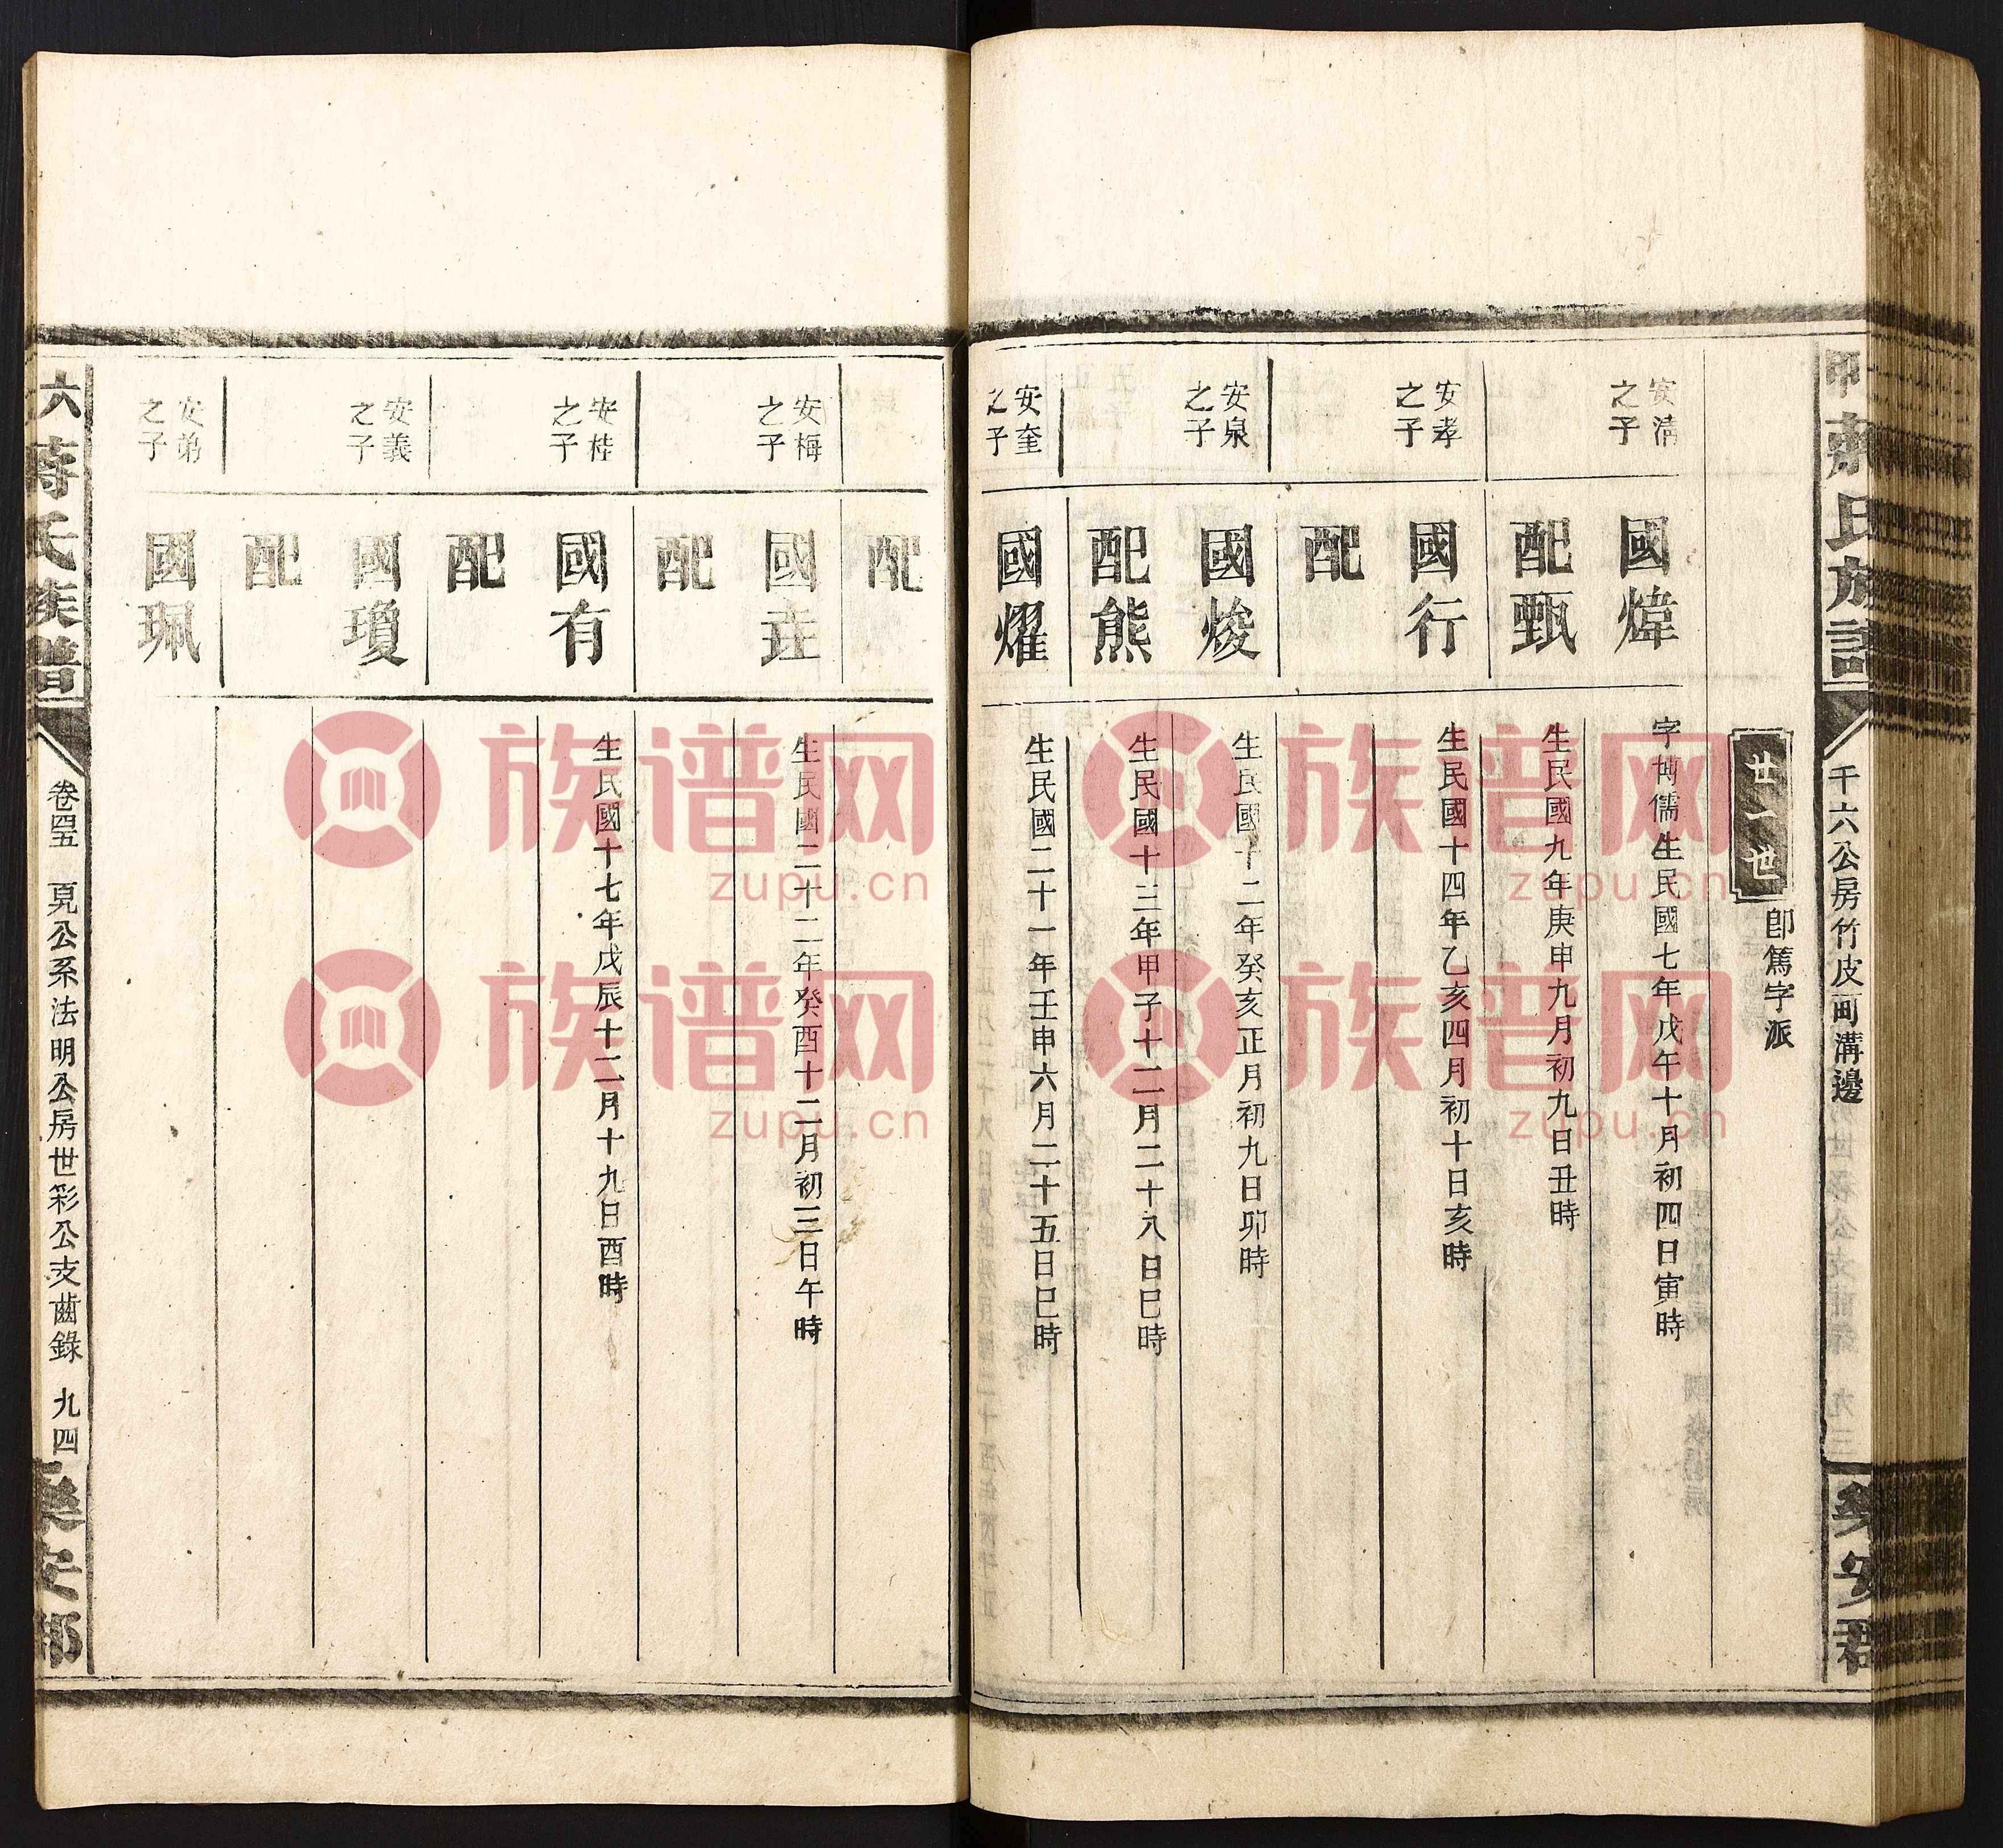 氏族譜
千六公房竹皮町溝邊
廿一世
卽篤字派
安清之子
國煒
字博儒生民國七年戊午十月初四日寅時
配甄
生民國九年庚申九月初九日丑時
安孝之子
國行
生民國十四年乙亥四月初十日亥時
配
安泉之子
國焌
生民國十二年癸亥正月初九日卯時
配熊
生民國十三年甲子十二月二十八日巳時
安奎之子
國燿
生民國二十一年壬申六月二十五日巳時
配
安梅之子
國垚
生民國二十二年癸酉十二月初三日午時
配
安桂之子
國有
生民國十七年戊辰十二月十九日酉時
配
安義之子
國瓊
配
安弟之子
國珮
六蔣氏族譜
卷四五 見公系法明公房世彩公支齒錄 九四
樂安郡
族谱网
zupu.cn
族谱网
zupu.cn
族谱网
zupu.cn
族谱网
zupu.cn